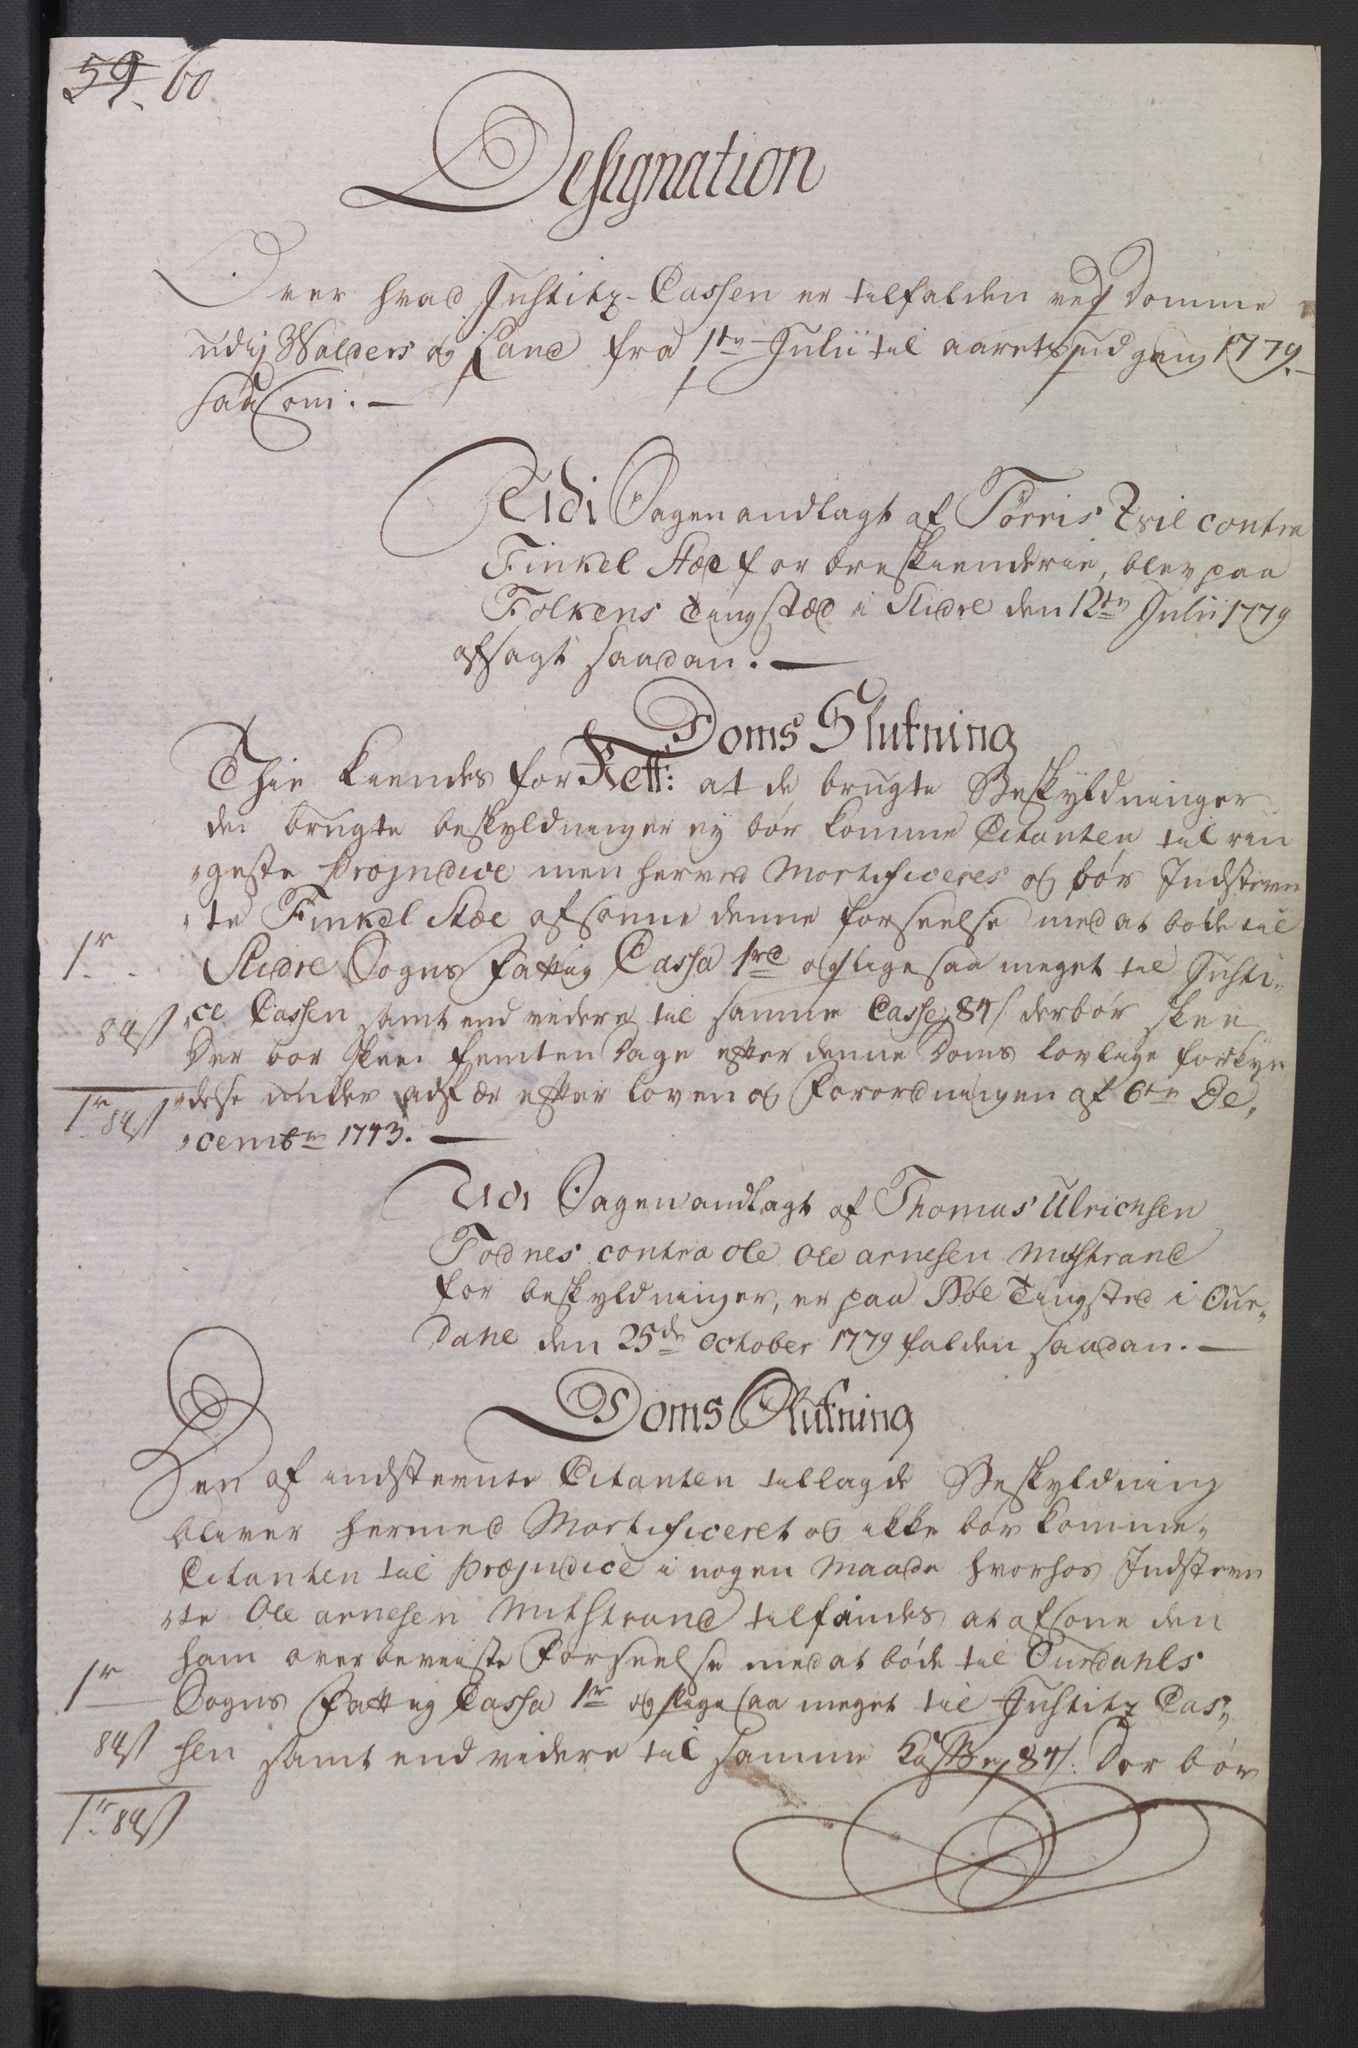 59. 60
Designation
Over hvad Justitz-Cassen er tilfalden ved Domme
udj Walders og Land fra 1te Julii til aarets udgang 1779.
saasom:
Udi Sagen andlagt af Tørris contra
Finkel Støe for æreskienderie, blev paa
Folkens Tingstæd i Slidre den 12te Julii 1779
afsagt saadan.
Doms Slutning
Thie kiendes for Rett: at de brugte Beskyldninger
de brugte beskyldninger ey bør komme Citanten til rin
geste Præjudice men herved Mortificeres og bør Indstevn
te Finkel Støe afsone denne forseelse med at bøde til
1r Slidre Sogns Fattig Cassa 1rd og ligesaa meget til Justi,
84s ce Cassen samt end videre til samme Casse 84s derbør skee
Der bør skee femten Dage efter denne Doms lovlige forkyn
1r 84s delse under adfær efter loven og Forordningen af 6te De,
cembr 1743.
Udi Sagen andlagt af Thomas Ulrichsen
Fodnes contra ole ole arnesen Mithstrand
for beskyldninger, er paa Bøe Tingsted i Our,
dahl den 25de October 1779 falden saadan.
Doms Slutning
Den af indstevnte Citanten tillagde Beskyldning
bliver hermed Mortificeret og ikke bør komme
Citanten til Præjudice i nogen Maade hvorhos Indstevn
te Ole arnesen Mithstrand tilfindes at afsone den
ham overbeviiste Forseelse med at bøde til Ourdahls
1r Sogns Fattig Cassa 1r og ligesaa meget til Justitz Cas,
84s sen samt end videre til samme Casse 84s. Der bør
1r 84s